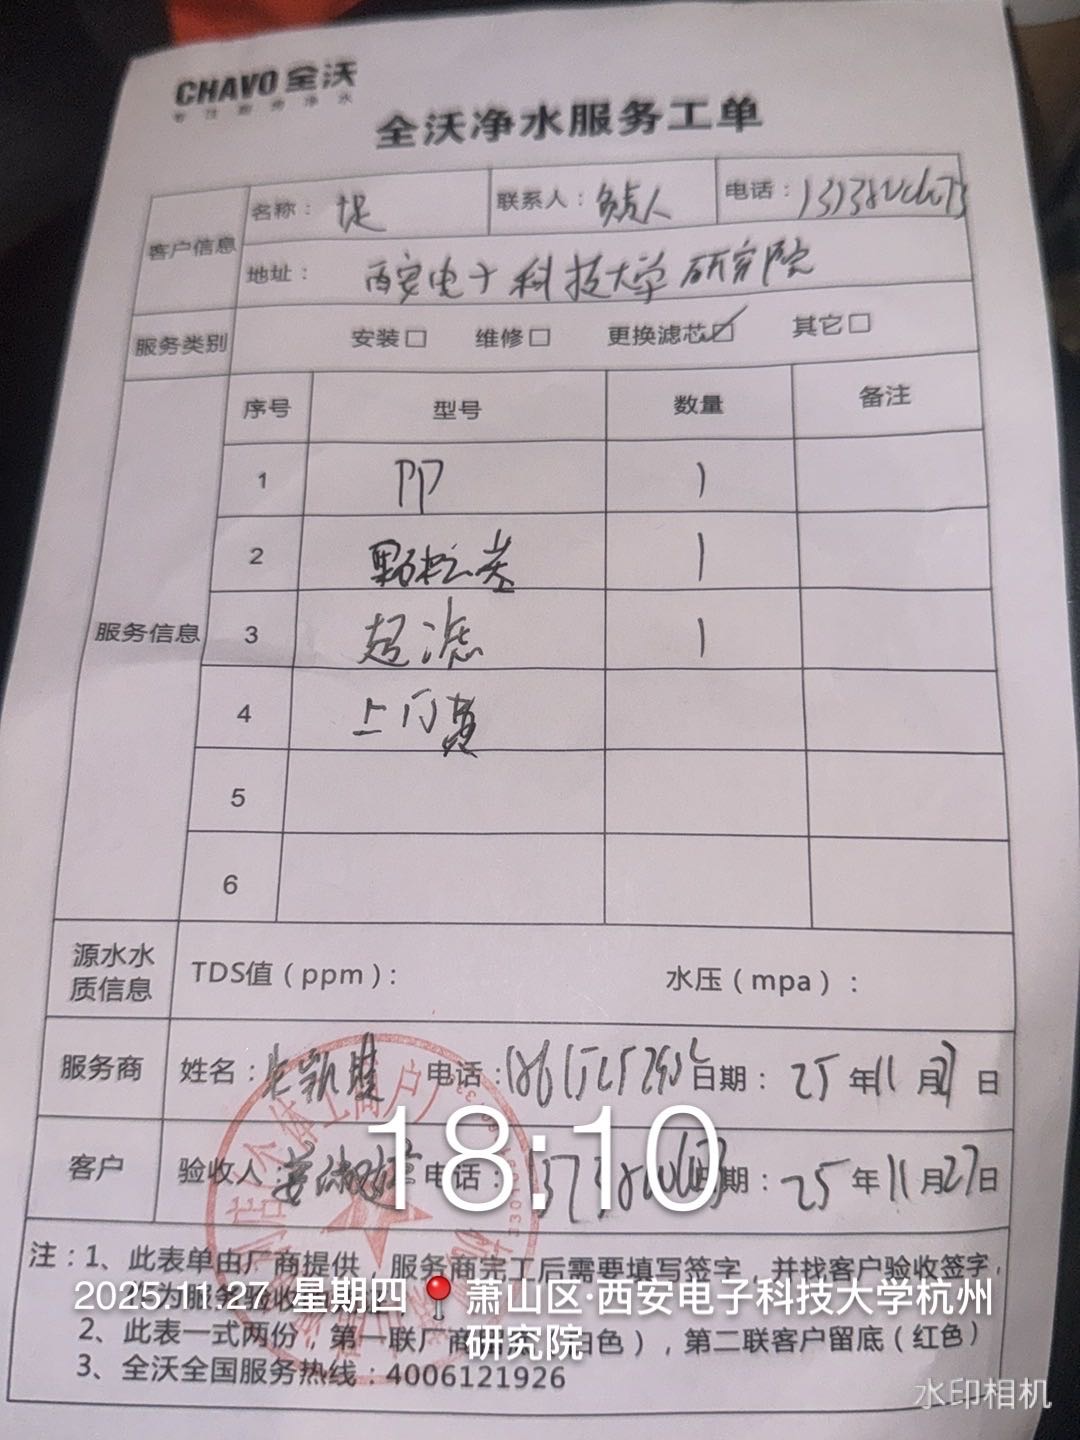 CHAVO 全沃
专注前沿净水
全沃净水服务工单
客户信息 名称： 联系人：负责人 电话：
地址： 西安电子科技大学研究院
服务类别 安装□ 维修□ 更换滤芯☑ 其它□
服务信息 序号 型号 数量 备注
1 PP 1
2 颗粒炭 1
3 超滤 1
4 上门费
5
6
源水水质信息 TDS值（ppm）： 水压（mpa）：
服务商 姓名： 电话： 日期： 25 年 11 月 27 日
客户 验收人： 电话： 日期： 25 年 11 月 27 日
18:10
注：1、此表单由厂商提供，服务商完工后需要填写签字，并找客户验收签字，
2025.11.27 星期四 萧山区·西安电子科技大学杭州研究院
2、此表一式两份，第一联厂商 白色），第二联客户留底（红色）
3、全沃全国服务热线：4006121926
水印相机